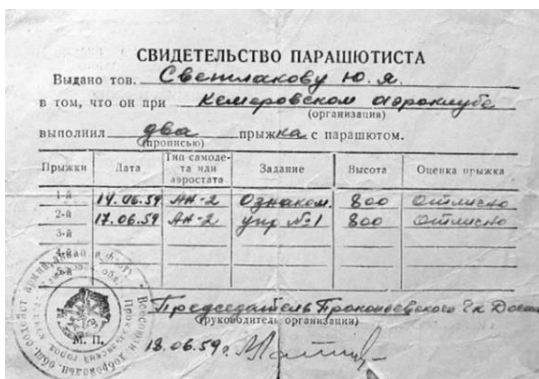 СВИДЕТЕЛЬСТВО ПАРАШЮТИСТА
Выдано тов. Светлакову Ю. Я.
в том, что он при Кемеровском аэроклубе
(организация)
выполнил два прыжка с парашютом.
(прописью)
Прыжки Дата Тип самолета или аэростата Задание Высота Оценка прыжка
1-й 14.06.59 АН-2 Ознаком. 800 Отлично
2-й 17.06.59 АН-2 упр №1 800 Отлично
3-й
4-й
Председатель Прокопьевского Гк
(руководитель организации)
М. П.
18.06.59г.